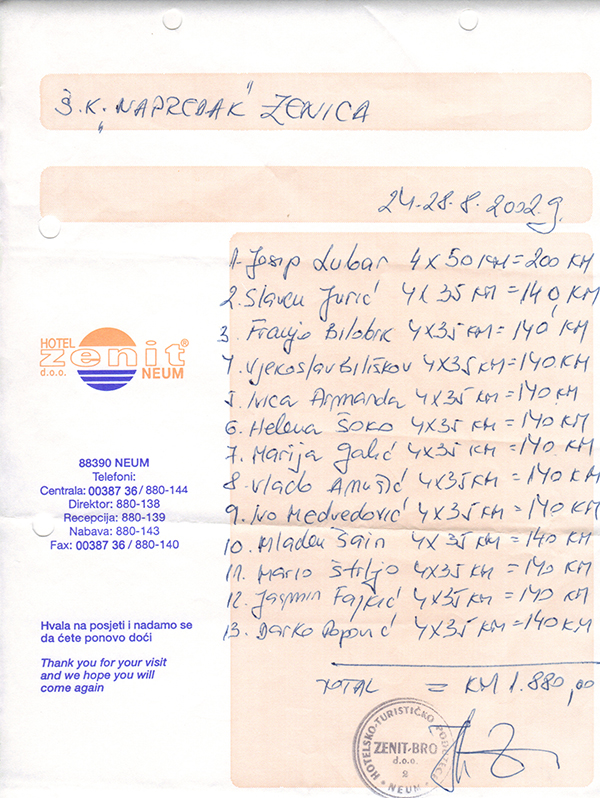 Š.K. „NAPREDAK" ZENICA
24-28.8.2002.g.
1. Josip Lubar 4 x 50 KM = 200 KM
2. Slaven Jurić 4 x 35 KM = 140 KM
3. Franjo Bilobrk 4x35 KM = 140 KM
4. Vjekoslav Biliškov 4x35 KM = 140 KM
5. Ivica Armanda 4x35 KM = 140 KM
6. Helena Šoko 4x35 KM = 140 KM
7. Marija Galić 4x35 KM = 140 KM
8. Vlado 4x35 KM = 140 KM
9. Ivo Medvedović 4x35 KM = 140 KM
10. Mladen Šain 4x35 KM = 140 KM
11. Mario Štrljo 4x35 KM = 140 KM
12. Jasmin Fajkić 4x35 KM = 140 KM
13. Darko Popović 4x35 KM = 140 KM
TOTAL = KM 1.880,00
HOTEL
zenit®
d.o.o. NEUM
88390 NEUM
Telefoni:
Centrala: 00387 36 / 880-144
Direktor: 880-138
Recepcija: 880-139
Nabava: 880-143
Fax: 00387 36 / 880-140
Hvala na posjeti i nadamo se
da ćete ponovo doći
Thank you for your visit
and we hope you will
come again
HOTELSKO-TURISTIČKO PODUZEĆE
ZENIT-BRO
d.o.o.
2
* NEUM *